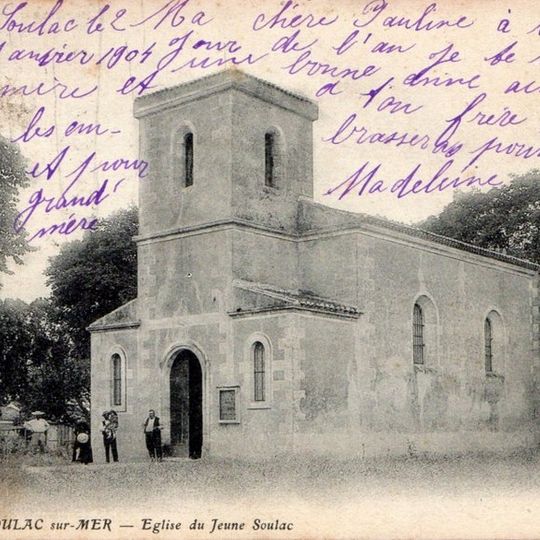 Soulac le 2 Ma chère Pauline à
Janvier 1904 Jour de l'an je
mère et une bonne année
à ton frère
les em-
brasseras pour
et pour
Madeleine
grand'
mère
OULAC sur-MER — Eglise du Jeune Soulac